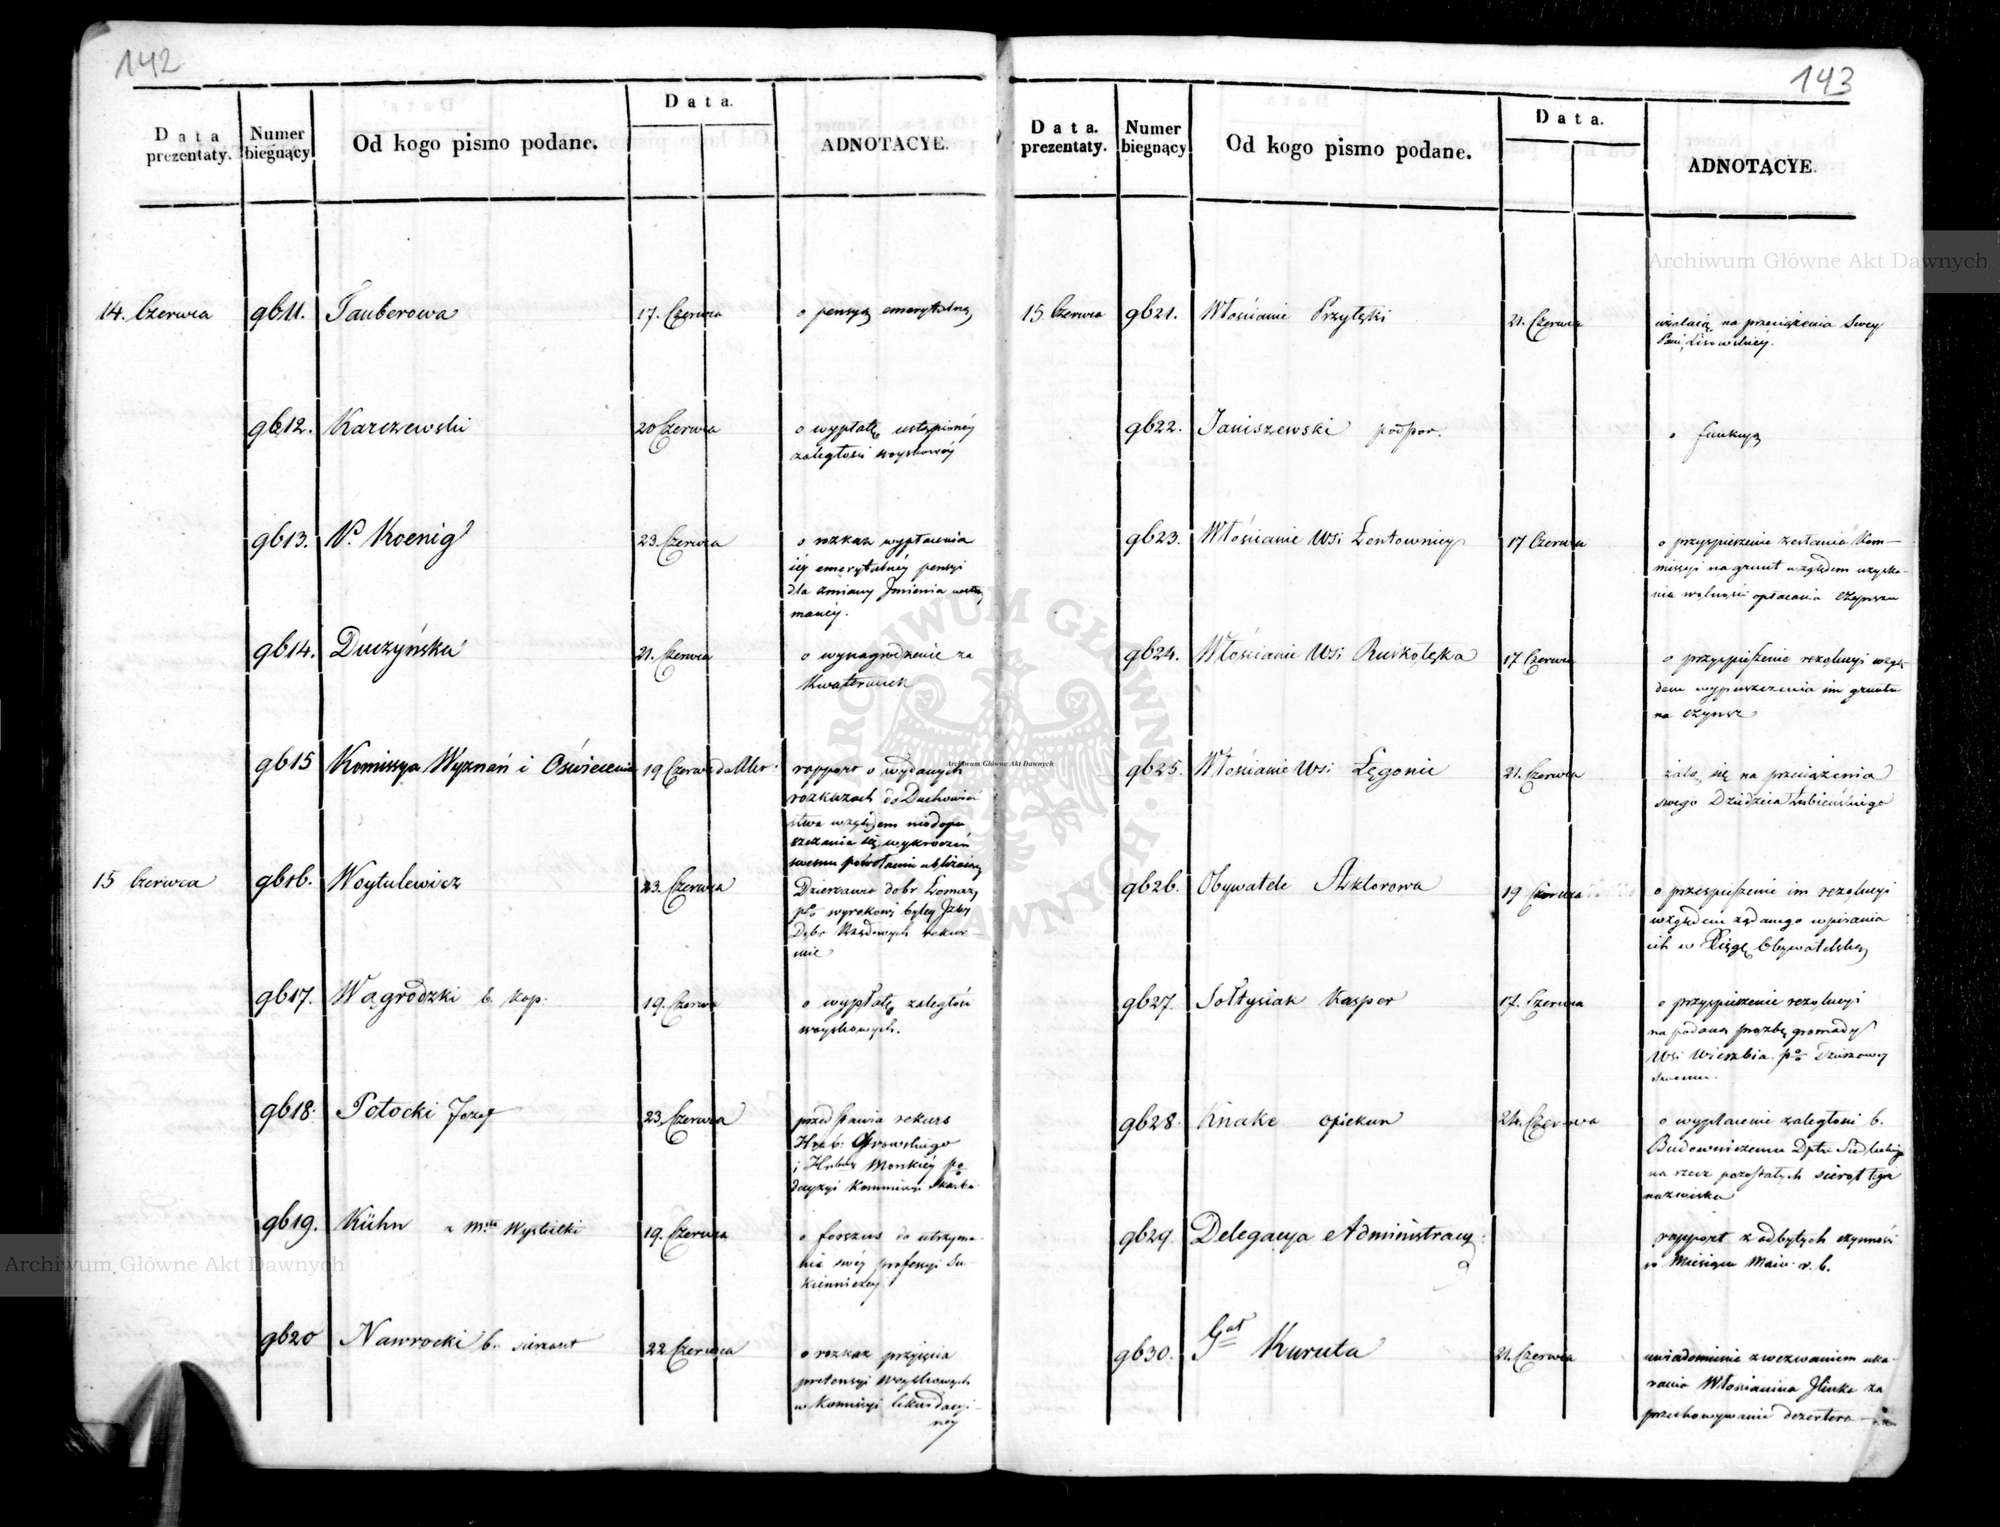 142
Data prezentaty.
Numer biegnący
Od kogo pismo podane.
Data.
ADNOTACYE.
14. Czerwca 9611. Tauberowa 17. Czerwca o pensyą emerytalną
9612. Karczewski 20 Czerwca o wypłatę ustąpionéy
zaległości woyskowéy
9613. Koenig 23. Czerwca o rozkaz wypłacenia
iéy emerytalnéy pensyi
dla zmiany Jmienia
9614. Duczyńska 21. Czerwca o wynagrodzenie za
Kwaterunek
9615 Komissya Wyznań i Oświecenia 19 Czerwca rapport o wydanych
rozkazach do Duchowień
stwa względem niedopu
szczania się wykroczeń
swemu powołaniu
15 Czerwca 9616. Woytulewicz 23. Czerwca Dzierzawca dobr Łomazy
wyrokowi byłey Izby
Dóbr Rządowych
9617. Wagrodzki b. Kap. 19. Czerwca o wypłatę zaległości
woyskowych.
9618. Potocki Jozef 23. Czerwca przedstawia rekurs
9619. Kühn z Mta 19. Czerwca o forszus do utrzyma
nia swéy professyi Su-
kienniczey
9620 Nawrocki b. sierżant 22 Czerwca o rozkaz przyięcia
pretensyi woyskowych
w Komissyi likwidacyi-
ney
143
Data. prezentaty.
Numer biegnący
Od kogo pismo podane.
Data.
ADNOTACYE.
15 Czerwca 9621. Włościanie Przyłęki 21. Czerwca na przeciążenia Swey
Pani
9622. Janiszewski podpor. o funkcyą
9623. Włościanie Wsi Łentownicy 17 Czerwca o przyspieszenie zesłania Kom-
missyi na grunt względem uzyska-
nia wolności opłacania Czynszu
9624. Włościanie Wsi Ruskołęka 17 Czerwca o przyspieszenie rezolucyi wzglę-
dem wypuszczenia im gruntu
na czynsz
9625. Włościanie Wsi Łęgonie 21. Czerwca żalą się na przeciążenia
swego Dziedzica Łubieńskiego
9626. Obywatele Aktorowa 19 Czerwca o przespieszenie im rezolucyi
względem żądanego wpisania
ich w Księgę Obywatelską
9627. Sołtysiak Kasper 17. Czerwca o przyspieszenie rezolucyi
na podaną prozbę gromady
Wsi Wierzbia
9628. Knake opiekun 24. Czerwca o wypłacenie zaległosci b.
Budowniczemu
na rzecz pozostałych sierot tego
nazwiska
9629. Delegacya Administracy: rapport z odbytych czynności
w Miesiącu Maiu r. b.
9630. Gał Kuruta 21. Czerwca uwiadomienie z wezwaniem uka-
rania Włościanina Jlinka za
przechowywanie dezertera
Archiwum Główne Akt Dawnych
Archiwum Główne Akt Dawnych
Archiwum Główne Akt Dawnych
ARCHIWUM GŁÓWNE AKT DAWNYCH